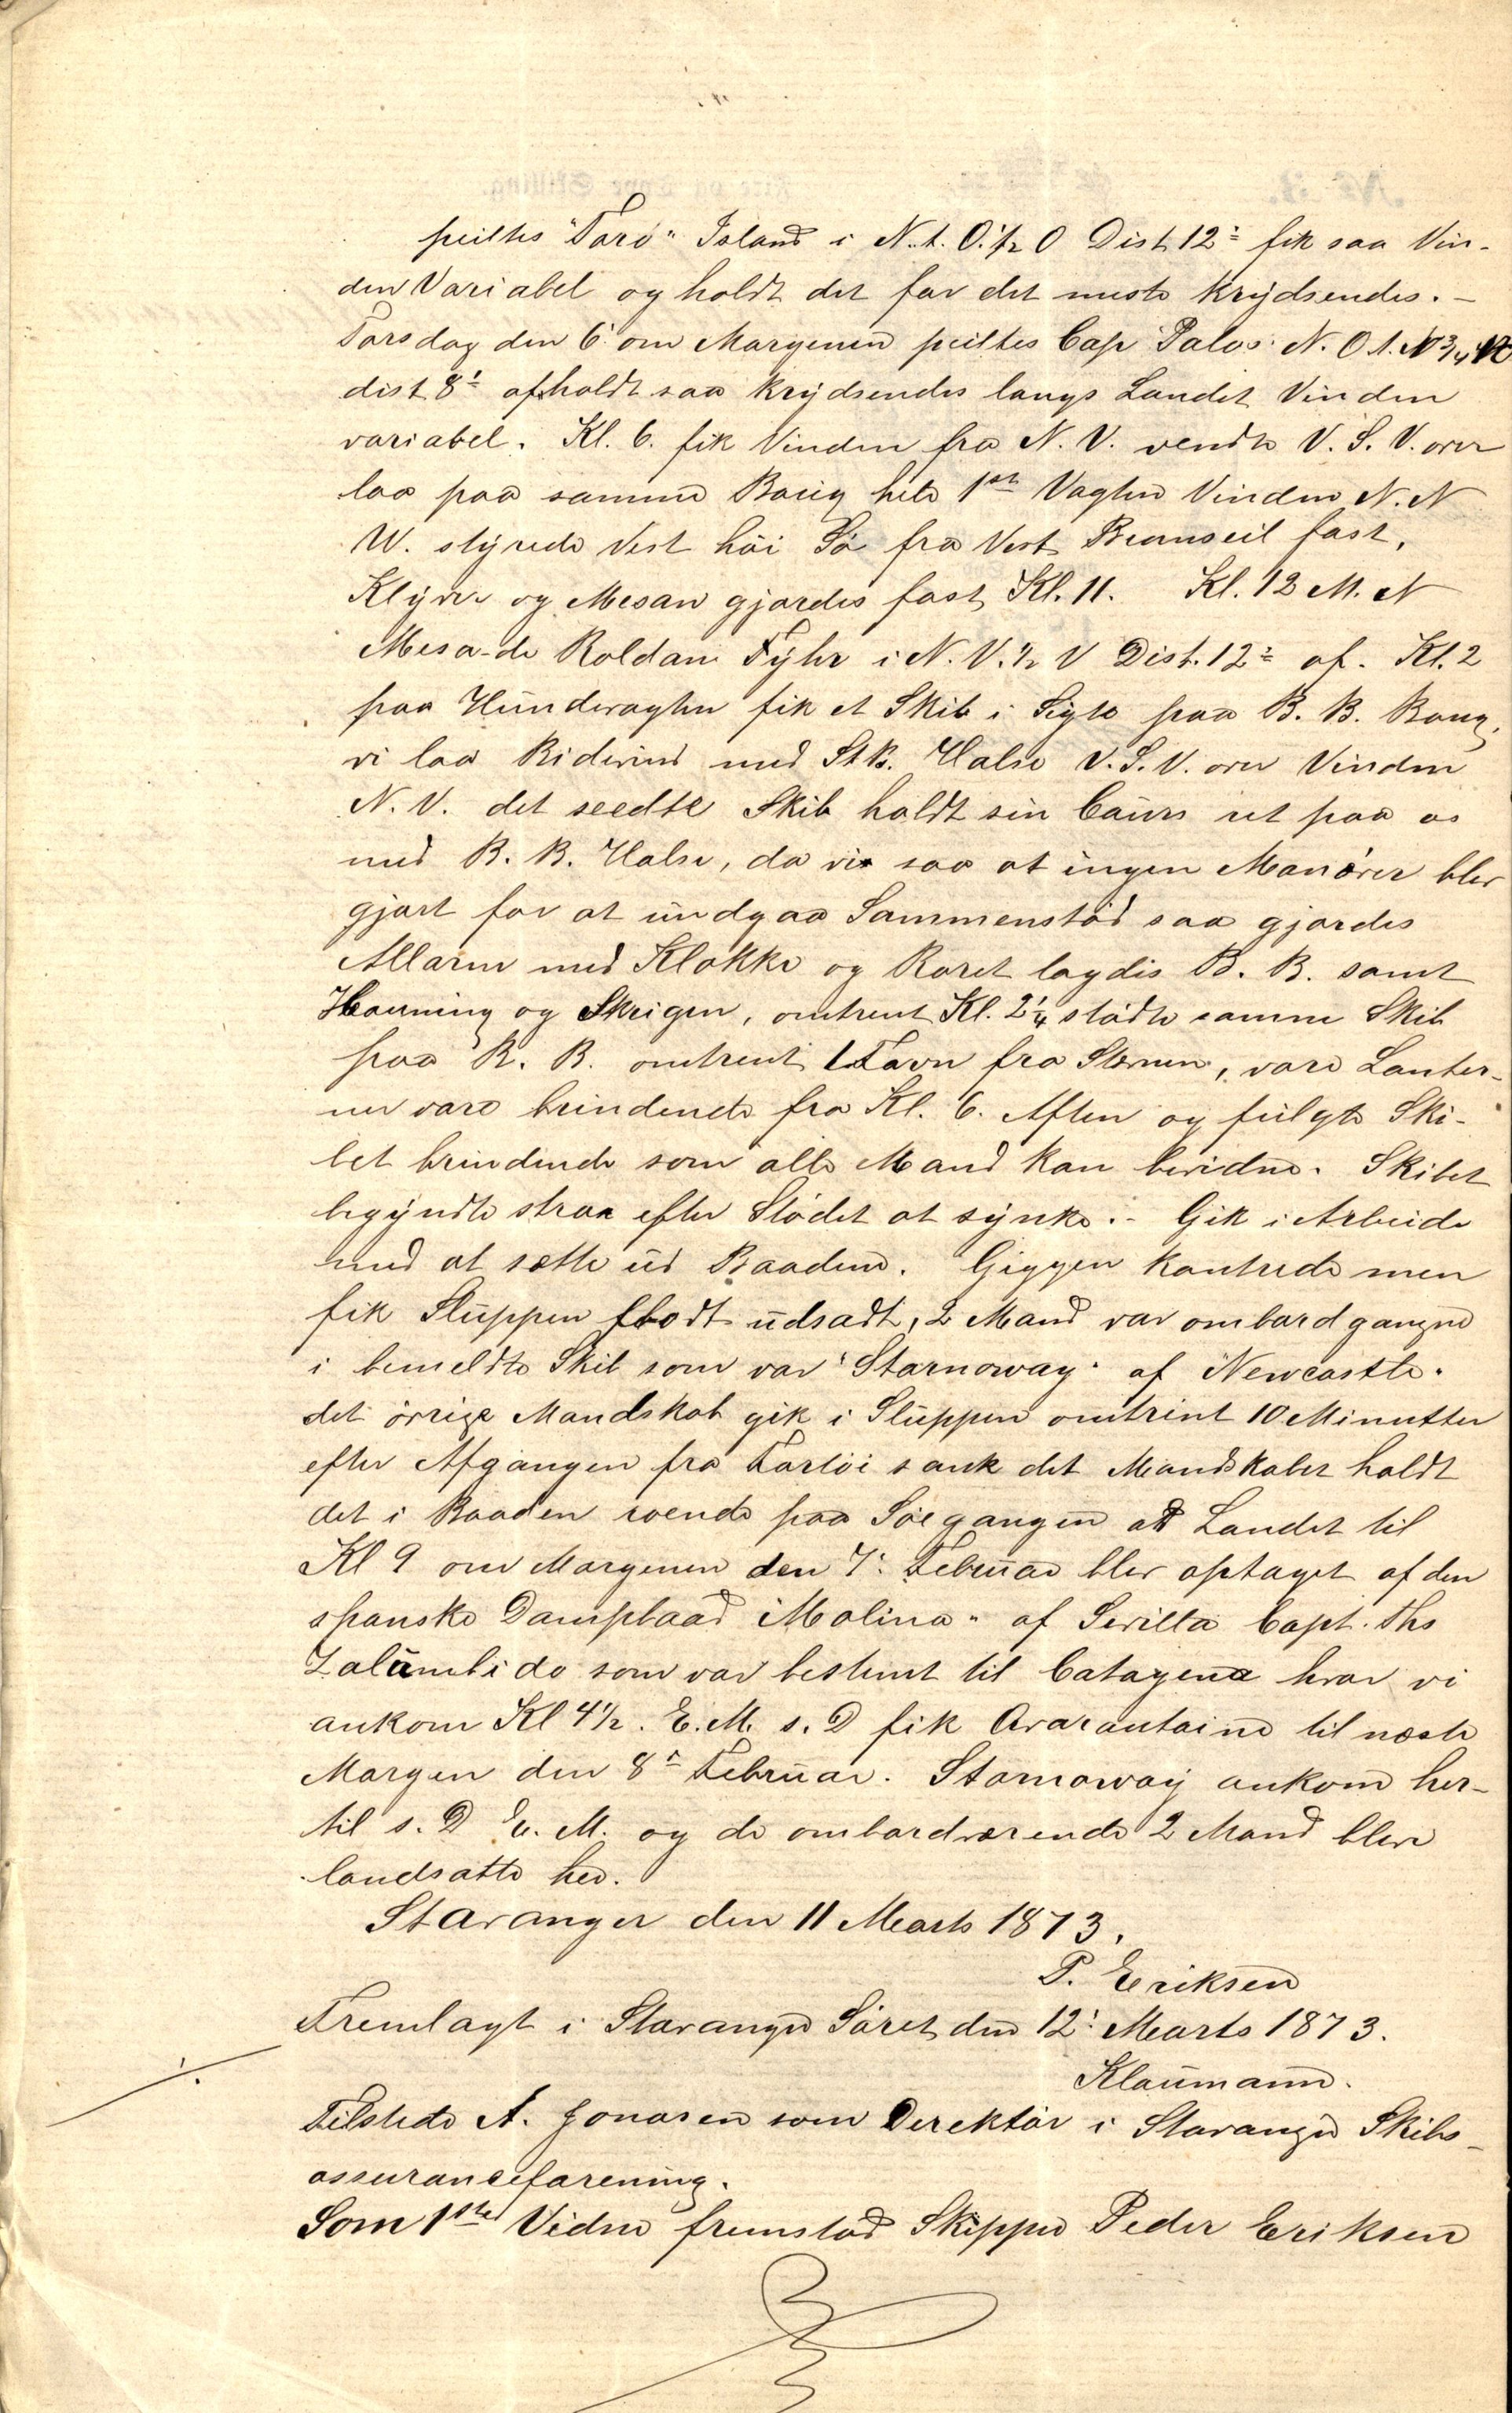 peiltes "Faro" Island i N. t. O. 1/2 O Dist 12' fik saa Vin-
den Variabel og holdt det for det meste krydsendes. -
Torsdag den 6' om Morgenen peiltes Cap Palos N. O t. N 3/4
dist 8' afholdt saa krydsendes langs Landet Vinden
variabel. Kl. 6. fik Vinden fra N. V. vendte V. S. V. over
laa paa samme Boug hele 1ste Vagten Vinden N. N
W. styrede Vest höi Sö fra Vest Bramseil fast,
Klyver og Mesan gjordes fast Kl. 11. Kl. 12 M. N
Mesa-de Roldan Fyhr i N. V. 1/2 V Dist. 12' af. Kl. 2
paa Hundevagten fik et Skib i Sigte paa B. B. Boug,
vi laa Bidevind med Stb. Halse V. S. V. over Vinden
N. V. det seedte Skib holdt sin Cours ret paa os
med B. B. Halse, da vi saa at ingen Manöver blev
gjort for at undgaa Sammenstöd saa gjordes
Allarm med Klokke og Roret lagdes B. B. samt
Houning og Skrigen, omtrent Kl. 2 1/4 stödte samme Skib
paa B. B. omtrent 1 Favn fra Stevnen, vare Lanter-
ner vare brendende fra Kl. 6. Aften og fulgte Ski-
bet brendende som alle Mand kan bevidne. Skibet
begyndte strax efter Stödet at synke. - Gik i Arbeide
med at sætte ud Baadene. Giggen kantrede men
fik Sluppen flodt udsadt, 2 Mand var ombord gangne
i bemeldte Skib som var "Starnoway" af Newcastle.
det örrige Mandskab gik i Sluppen omtrent 10 Minutter
efter Afgangen fra Fartöi sank det Mandskabet holdt
det i Baaden roende paa Söegangen at Landet til
Kl 9 om Morgenen den 7' Februar blev optaget af den
spanske Dampbaad "Molina" af Sevilla Capt. Ths
Zalumbido som var bestemt til Catagena hvor vi
ankom Kl 4 1/2. E. M. s. D fik Qvarantaine til næste
Morgen den 8' Februar. Stornoway ankom her-
til s. D E. M. og de ombordværende 2 Mand bleve
landsatte her.
Stavanger den 11 Marts 1873.
P. Eriksen
Fremlagt i Stavanger Söret den 12' Marts 1873.
Klaumann.
Tilstede A. Jonasen som Derektör i Stavanger Skibs-
assuranceforening.
Som 1ste Vidne fremstod Skipper Peder Eriksen